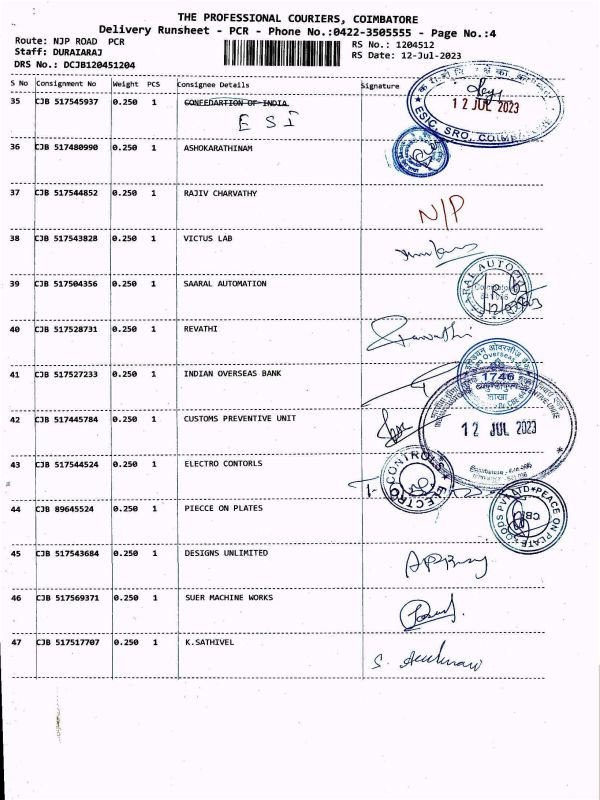 THE PROFESSIONAL COURIERS, COIMBATORE
Delivery Runsheet - PCR - Phone No.:0422-3505555 - Page No.:4
Route: NJP ROAD PCR
RS No.: 1204512
Staff: DURAIARAJ
RS Date: 12-Jul-2023
DRS No.: DCJB120451204
S No Consignment No Weight PCS Consignee Details Signature
35 CJB 517545937 0.250 1 CONFEDARTION OF INDIA
ESI
12 JUL 2023
ESIC, SRO, COIMBA
36 CJB 517480990 0.250 1 ASHOKARATHINAM
37 CJB 517544852 0.250 1 RAJIV CHARVATHY
N/P
38 CJB 517543828 0.250 1 VICTUS LAB
39 CJB 517504356 0.250 1 SAARAL AUTOMATION
40 CJB 517528731 0.250 1 REVATHI
41 CJB 517527233 0.250 1 INDIAN OVERSEAS BANK
1746
शाखा
42 CJB 517445784 0.250 1 CUSTOMS PREVENTIVE UNIT
12 JUL 2023
43 CJB 517544524 0.250 1 ELECTRO CONTORLS
ELECTRO CONTROLS
44 CJB 89645524 0.250 1 PIECCE ON PLATES
45 CJB 517543684 0.250 1 DESIGNS UNLIMITED
46 CJB 517569371 0.250 1 SUER MACHINE WORKS
47 CJB 517517707 0.250 1 K.SATHIVEL